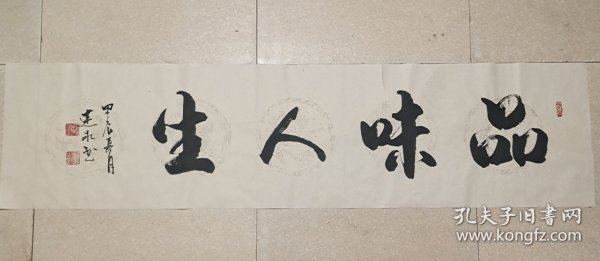 品味人生
甲辰春月
建永书
孔夫子旧书网
www.kongfz.com